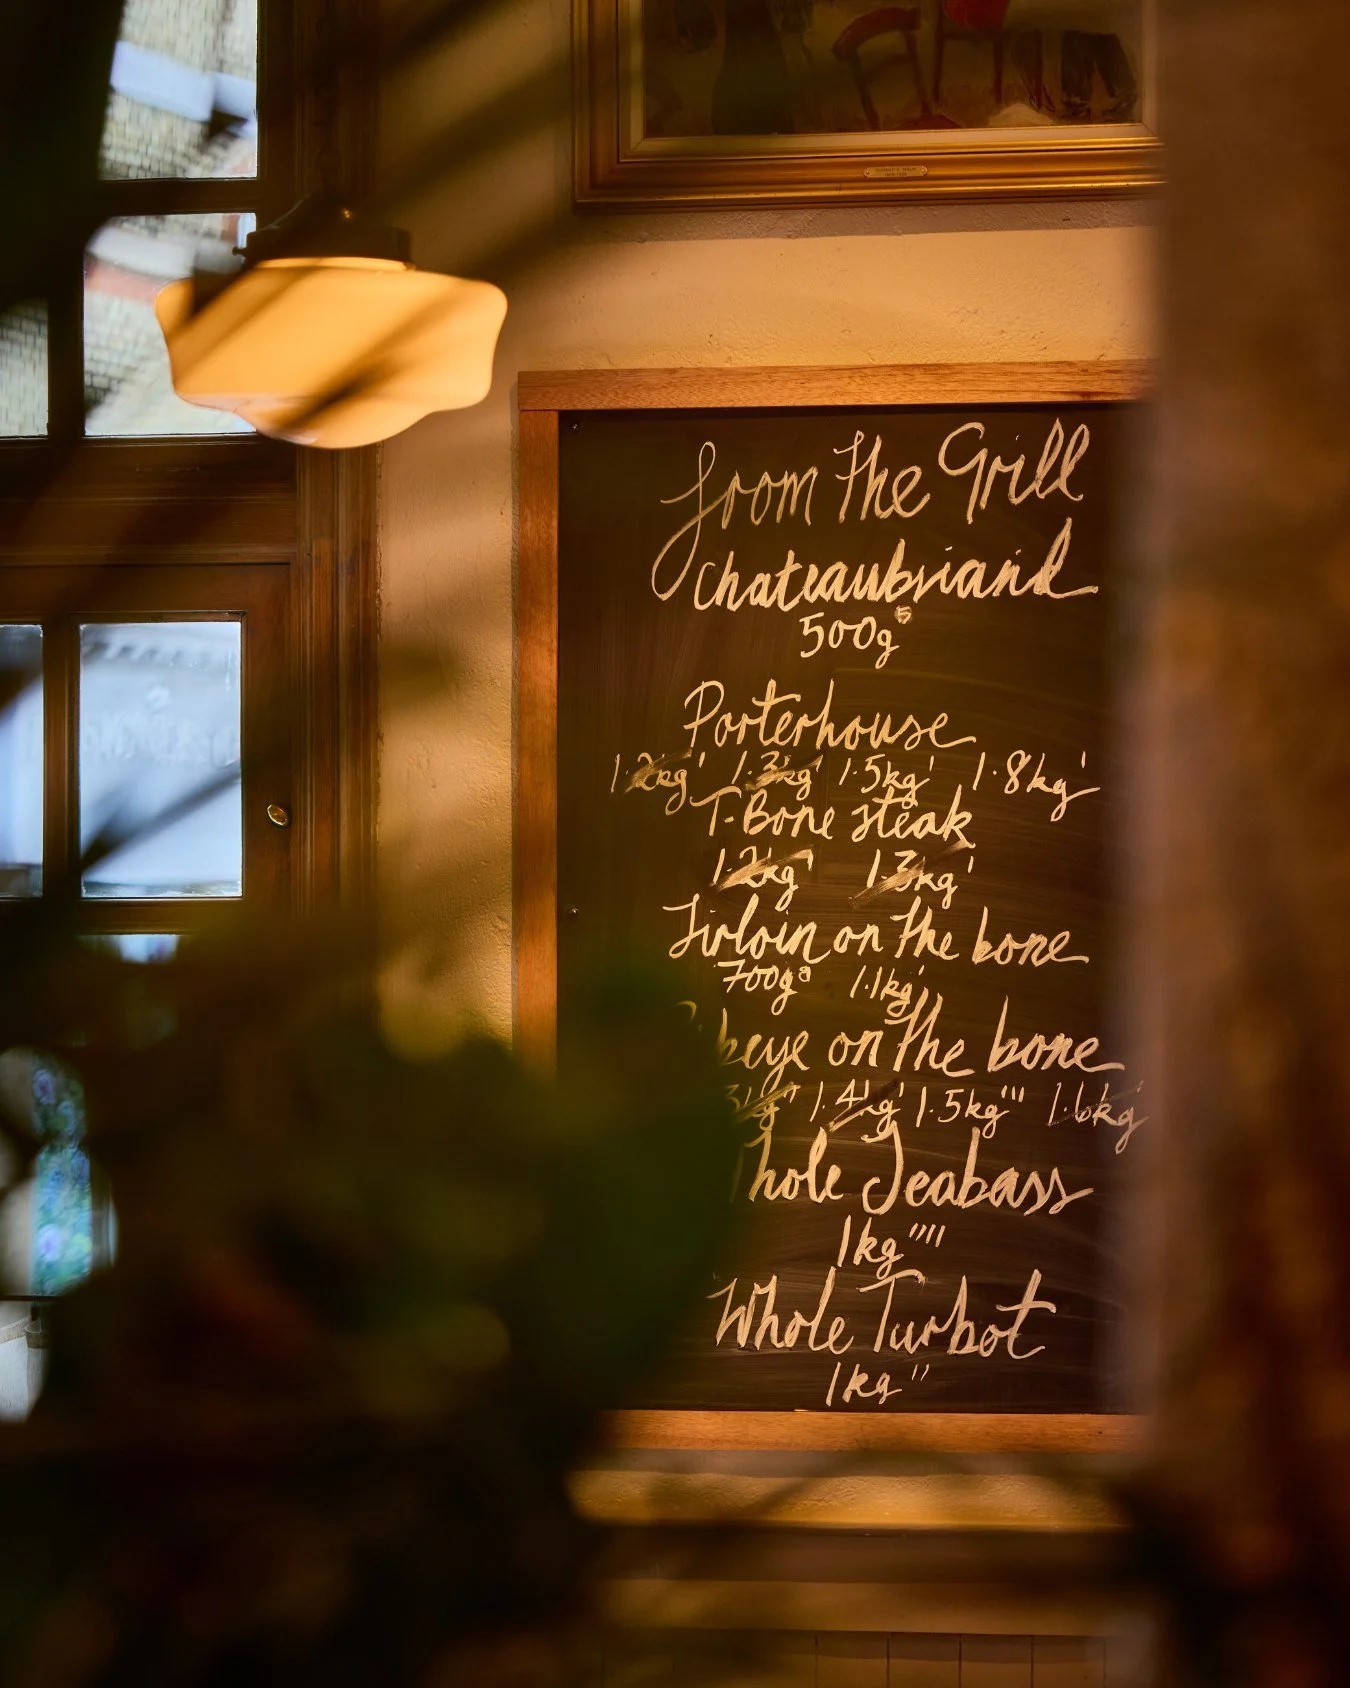 from the Grill
Chateaubriand
500g 5
Porterhouse
1.2kg' 1.3kg' 1.5kg' 1.8kg'
T-Bone steak
1.2kg' 1.3kg'
Sirloin on the bone
700g 1.1kg'
beye on the bone
3kg" 1.4kg' 1.5kg''' 1.6kg'
hole Seabass
1kg''''
Whole Turbot
1kg''